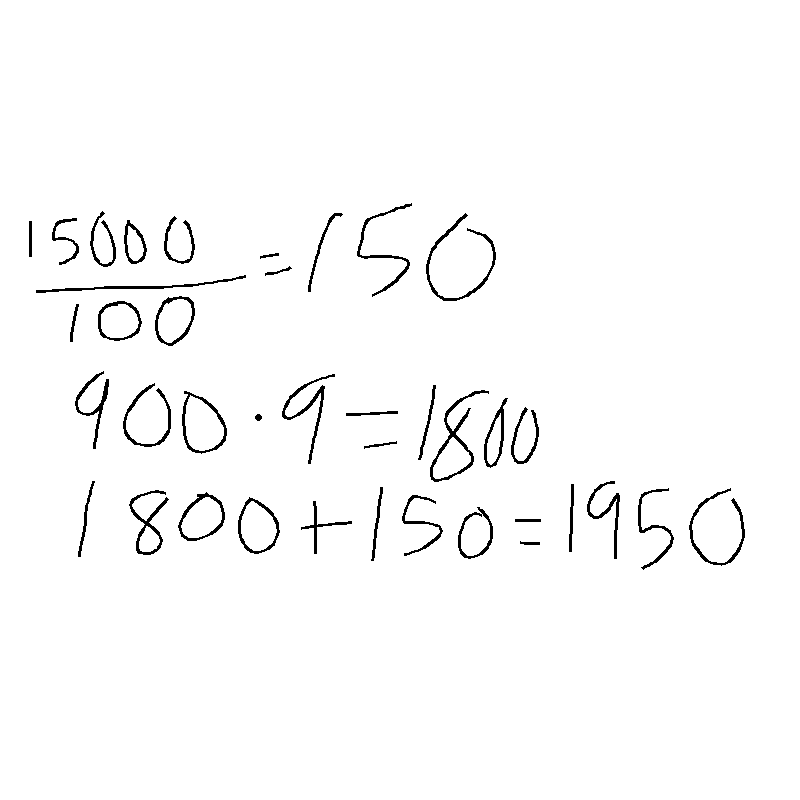 15000/100 = 150
900 · 9 = 1800
1800 + 150 = 1950